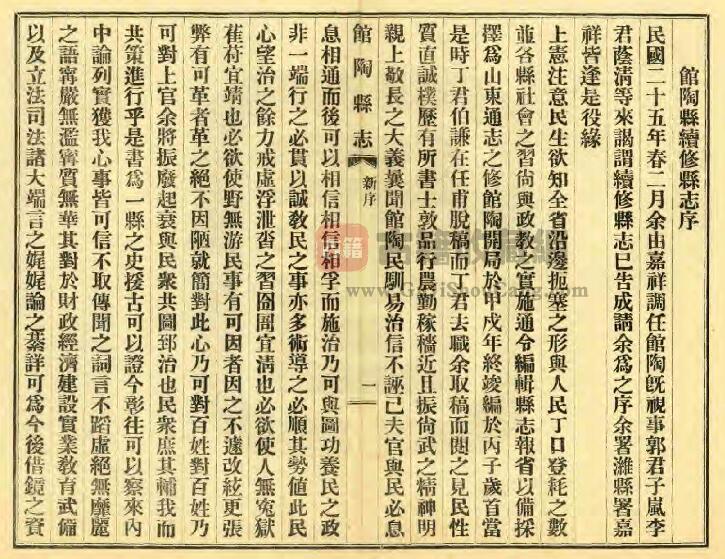 館陶縣續修縣志序
民國二十五年春二月余由嘉祥調任館陶旣視事郭君子嵐李
君蔭淸等來謁謂續修縣志已告成請余爲之序余署濰縣署嘉
祥皆逢是役緣
上憲注意民生欲知全省沿邊扼塞之形與人民丁口登耗之數
並各縣社會之習尙與政敎之實施通令編輯縣志報省以備採
擇爲山東通志之修館陶開局於甲戌年終竣編於丙子歲首當
是時丁君伯謙在任甫脫稿而丁君去職余取稿而閱之見民性
質直誠樸歷有所書士敦品行農勤稼穡近且振尙武之精神明
親上敬長之大義曩聞館陶民馴易治信不誣已夫官與民必息
館陶縣志
新序
一
息相通而後可以相信相信相孚而施治乃可與圖功養民之政
非一端行之必貫以誠敎民之事亦多術導之必順其勢値此民
心望治之餘力戒虛浮泄沓之習囹圄宜淸也必欲使人無冤獄
萑苻宜靖也必欲使野無游民事有可因者因之不遽改絃更張
弊有可革者革之絕不因陋就簡對此心乃可對百姓對百姓乃
可對上官余將振廢起衰與民衆共圖郅治也民衆庶其輔我而
共策進行乎是書爲一縣之史援古可以證今彰往可以察來內
中論列實獲我心事皆可信不取傳聞之詞言不蹈虛絕無靡麗
之語寧嚴無濫寧質無華其對於財政經濟建設實業敎育武備
以及立法司法諸大端言之娓娓論之綦詳可爲今後借鏡之資
古籍收藏網
www.GuJiShouCang.com